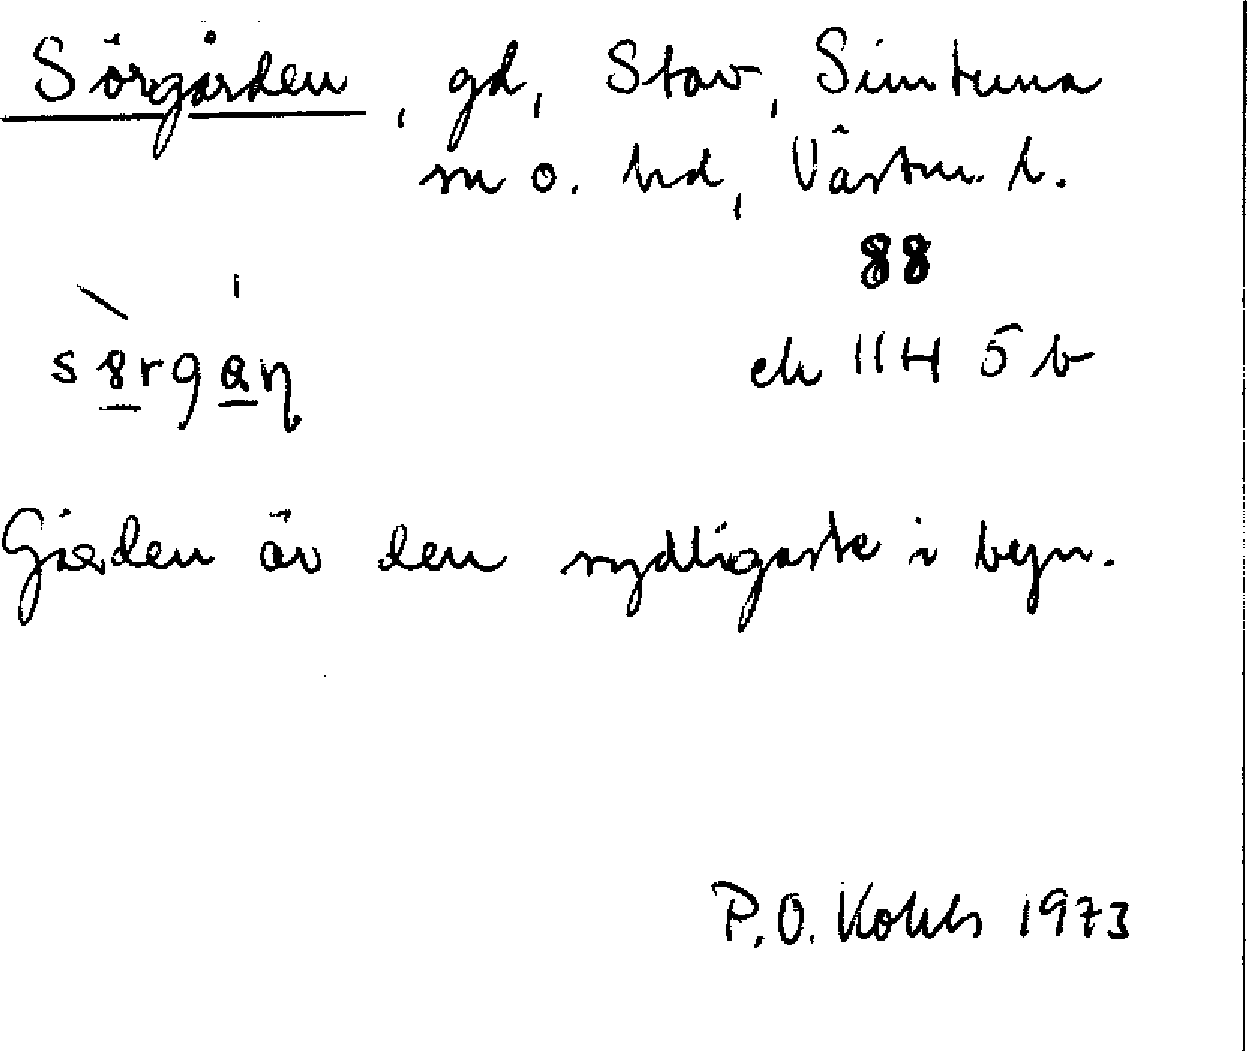 Sörgården, gd, Stav, Simtuna
sn o. hd, Västm. l.
88
ek 11H 5b
Gården är den sydligaste i byn.
P.O. 1973